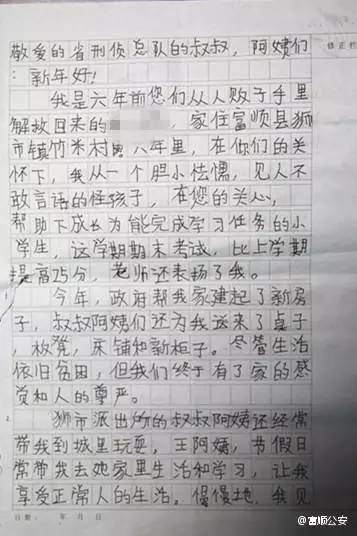 敬爱的省刑侦总队的叔叔,阿姨们
:新年好!
我是六年前您们从人贩子手里
解放回来的 ,家住富顺县狮
市镇竹米村 八年里,在你们的关
怀下,我从一个胆小怯懦,见人不
敢言语的怪孩子,在您的关心,
帮助下成长为能完成学习任务的小
学生,这学期期末考试,比上学期
提高25分,老师还表扬了我。
今年,政府帮我家建起了新房
子,叔叔阿姨们还为我送来了桌子
,板凳,床铺和新柜子。尽管生活
依旧贫困,但我们终于有了家的感
觉和人的尊严。
狮市派出所的叔叔阿姨还经常
带我到城里玩耍,王阿姨,节假日
常带我去她家里生活和学习,让我
享受正常人的生活。慢慢地,我见
日期: 年 月 日
修正栏
@富顺公安